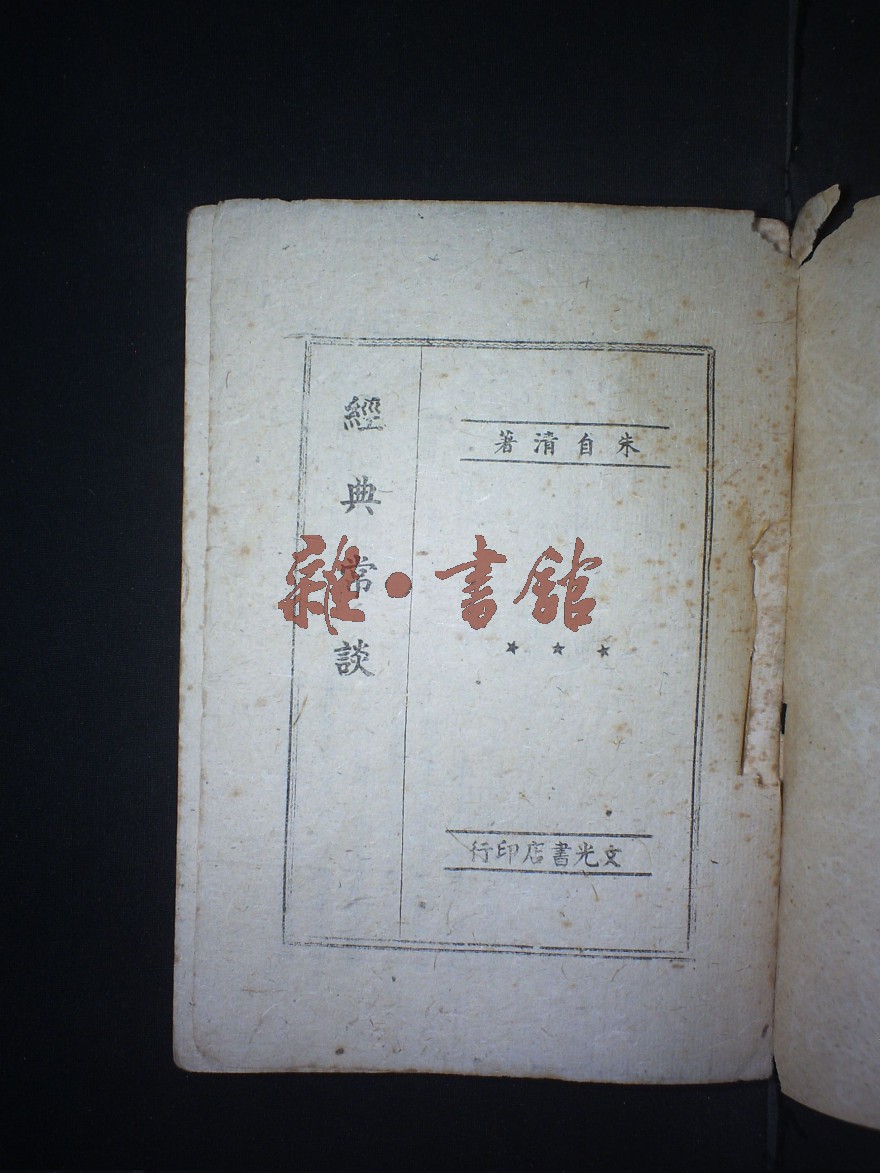 朱自清著
經典常談
★★★
文光書店印行
雜·書館